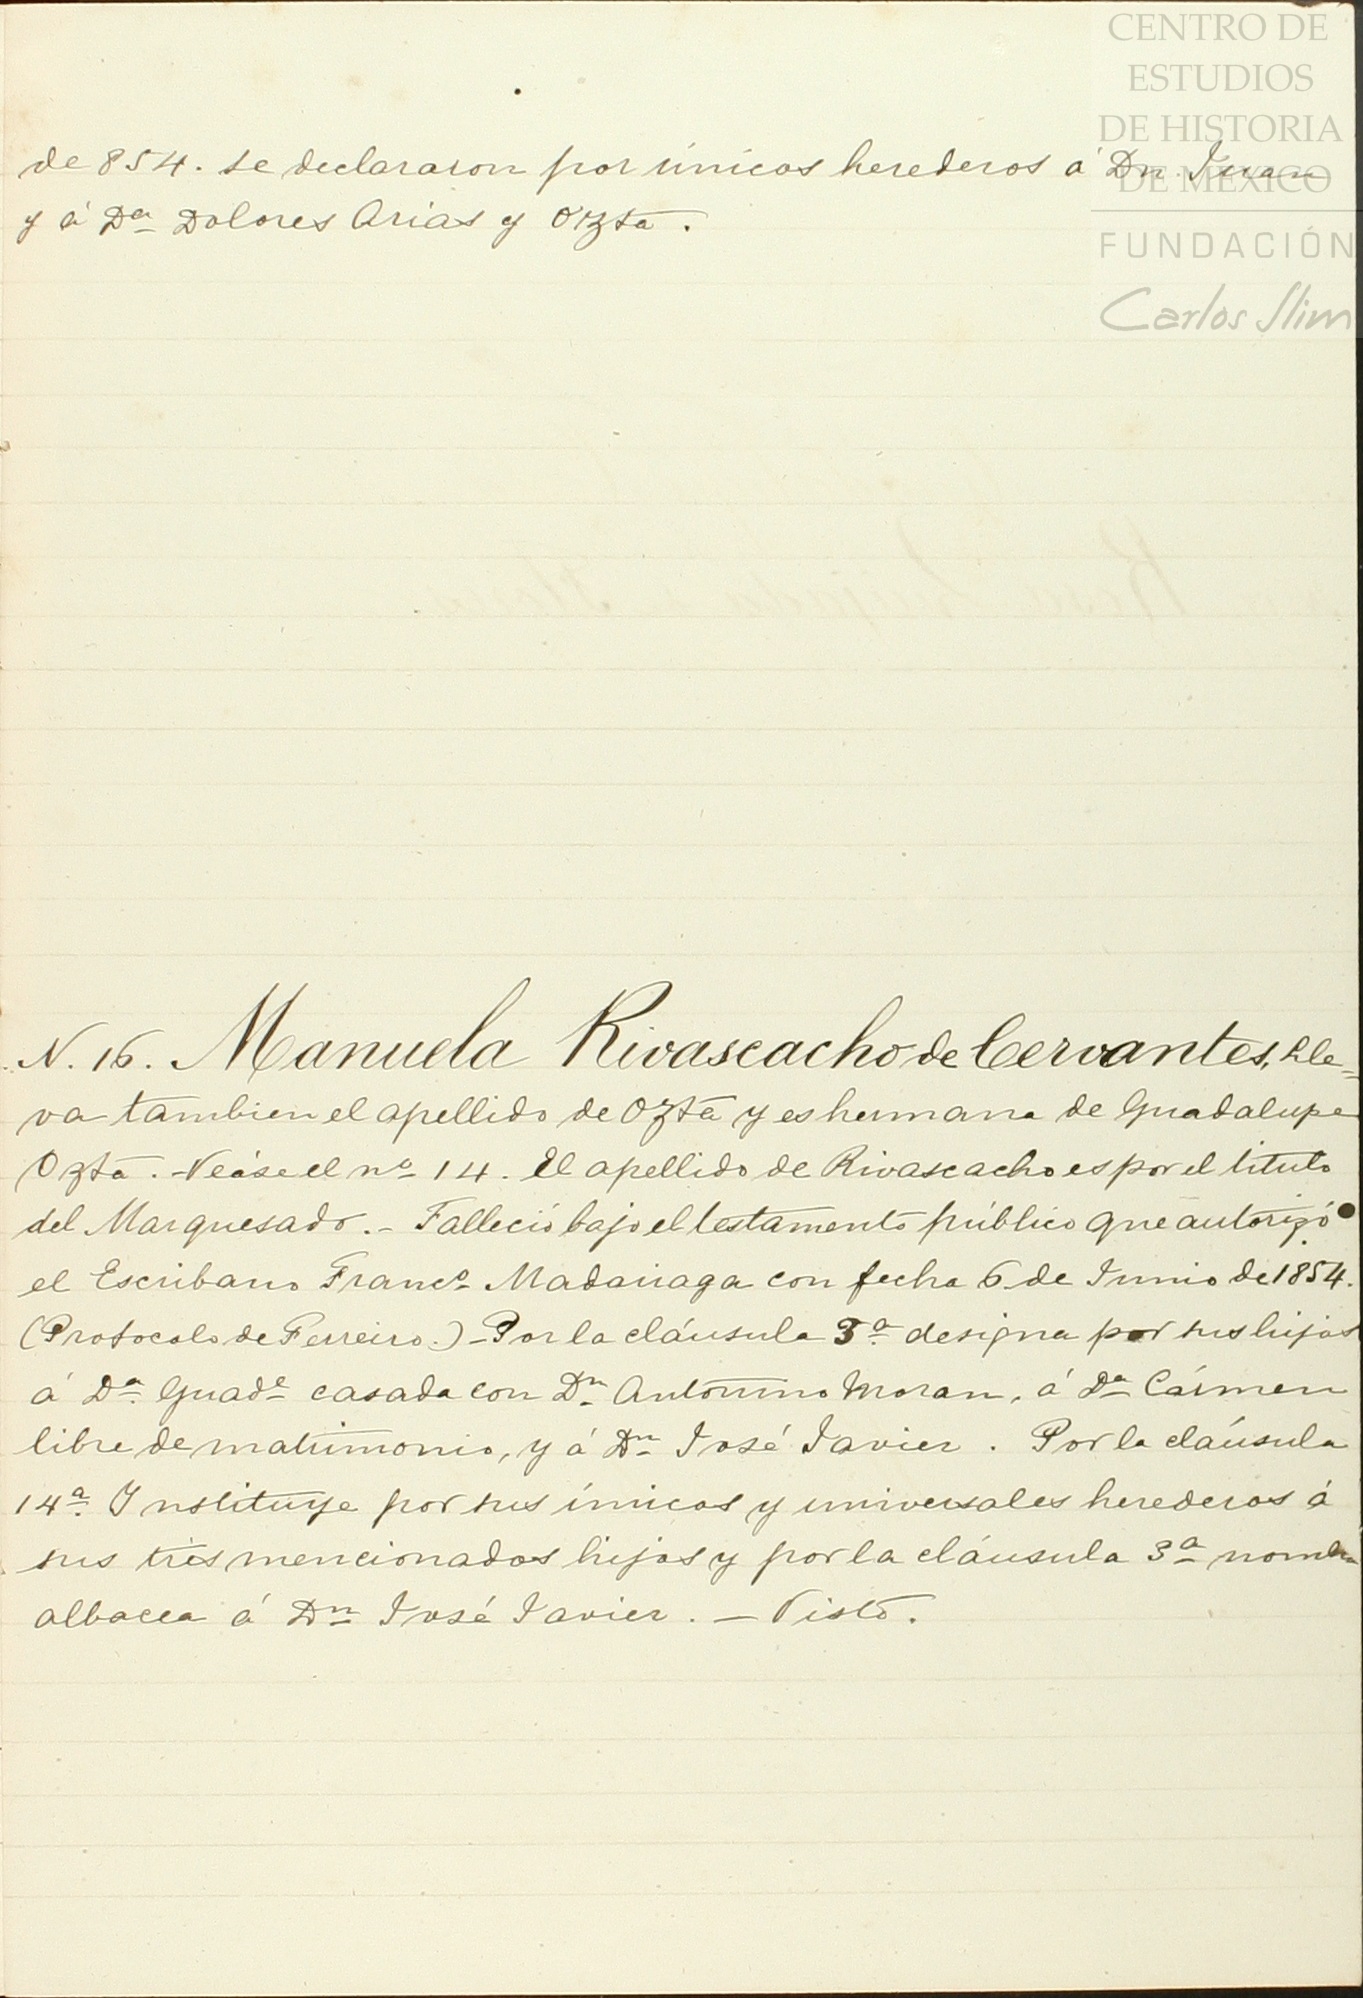 CENTRO DE
ESTUDIOS
DE HISTORIA
DE MÉXICO
FUNDACIÓN
Carlos Slim
de 854. se declararon por únicos herederos á Dn. Juan
y á Da Dolores Arias y Ozta.
N. 16. Manuela Rivascacho de Cervantes, Lle-
va tambien el apellido de Ozta y es hermana de Guadalupe
Ozta. - Veáse el no 14. El apellido de Rivascacho es por el titulo
del Marquesado. - Falleció bajo el testamento público que autorizó
el Escribano Franco Madariaga con fecha 6 de Junio de 1854.
(Protocolo de Ferreiro.) - Por la cláusula 3a designa por sus hijos
á Da Guade casada con Dn Antonino Moran, á Da Cármen
libre de matrimonio, y á Dn José Javier. Por la cláusula
14a Instituye por sus únicos y universales herederos á
sus tres mencionados hijos y por la cláusula 3a nombra
albacea á Dn José Javier. - Visto.